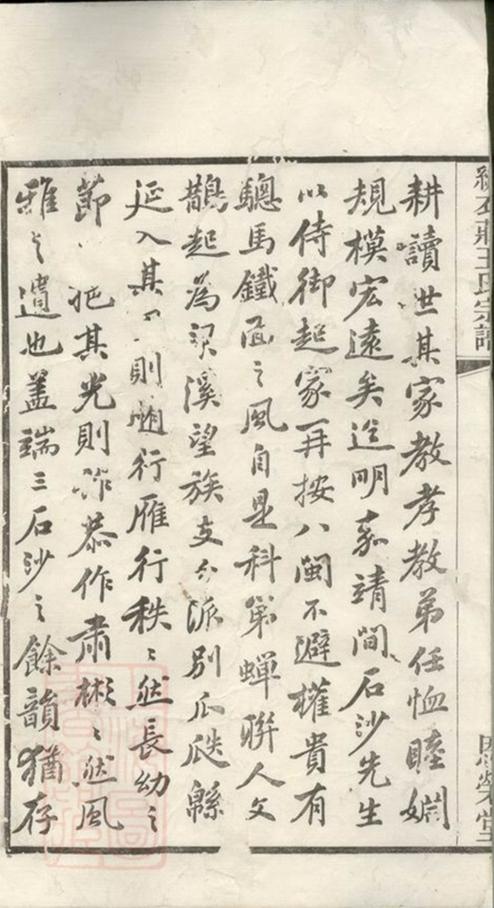 莊王氏宗譜
思榮堂
耕讀世其家教孝教弟任恤睦婣
規模宏遠矣迨明嘉靖間石沙先生
以侍御起家再按八閩不避權貴有
驄馬鐵面之風自是科第蟬聯人文
鵲起為梁溪望族支分派別瓜瓞緜
延入其門則隨行雁行秩〻然長幼之
節挹其光則作恭作肅彬〻然風
雅之遺也蓋端三石沙之餘韻猶存